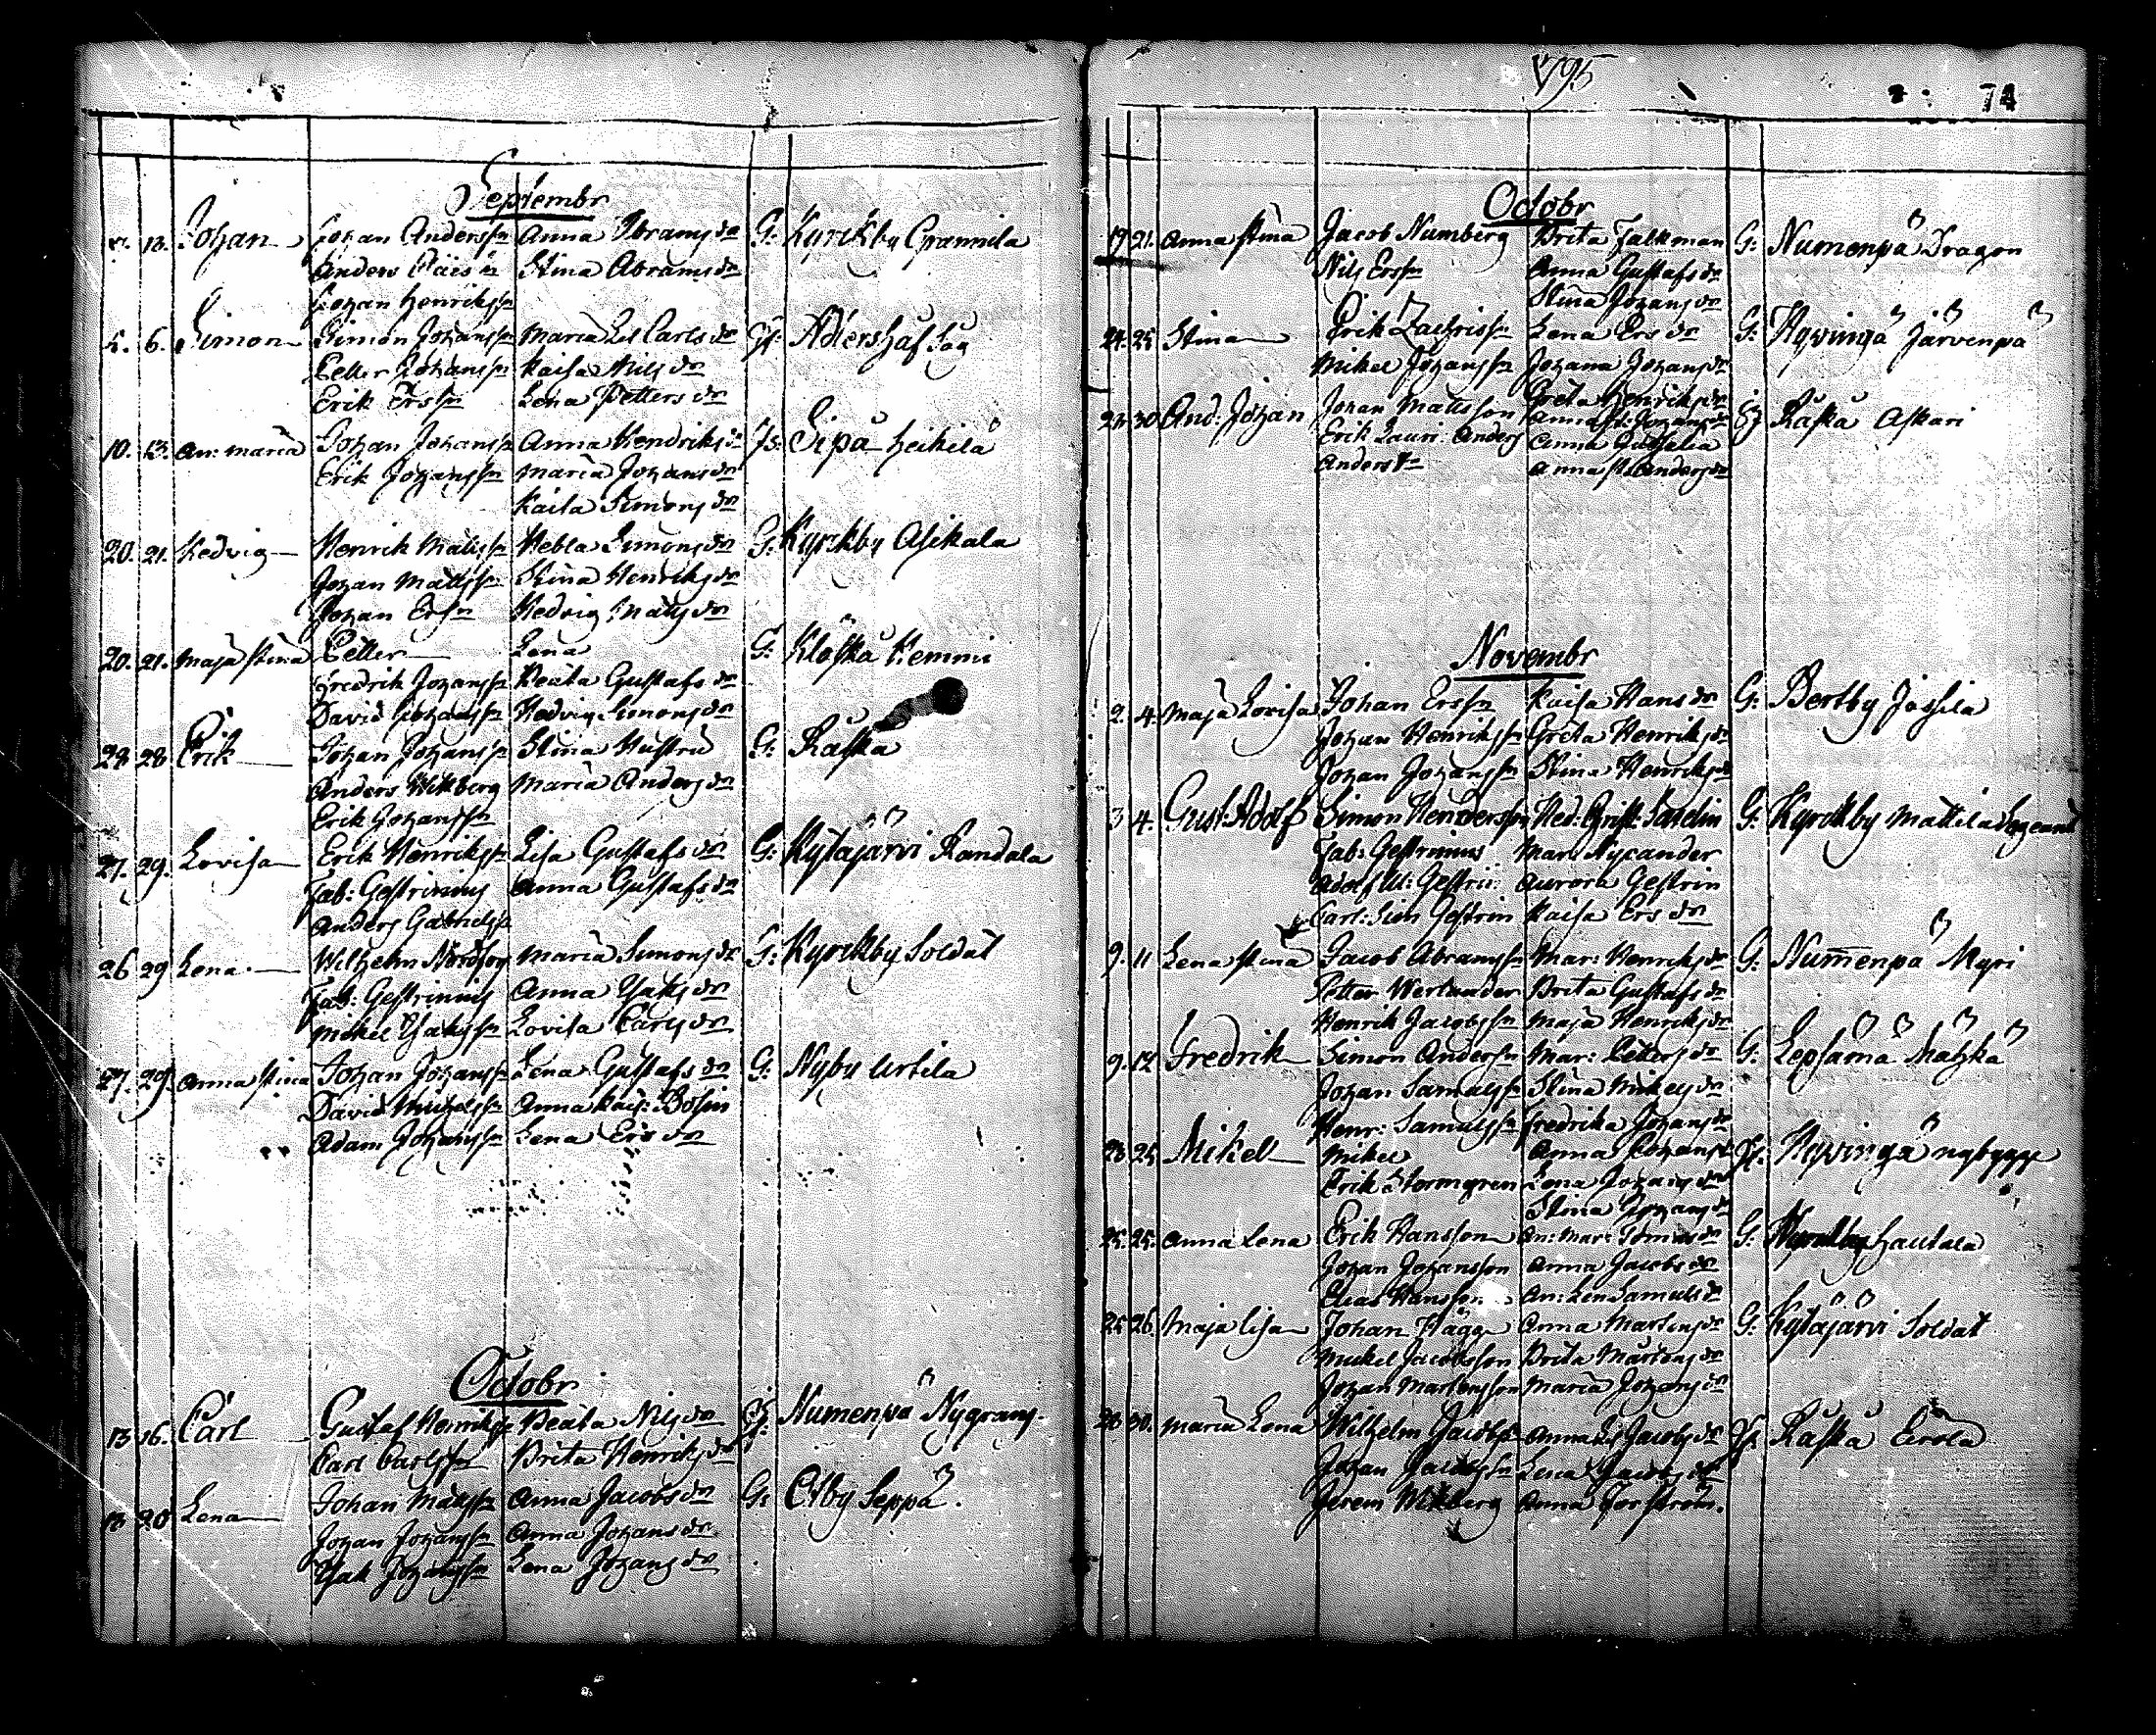 Septembr
13. Johan Johan Anderss:n Anna Abramsdr G: Kyrckby Grannila
Anders Stina Abramsdr
Johan Henrikss:n
5. 6. Simon Simon Johanss:n Maria Lis Carlsdr Jf: Adlershof Såg
Petter Johanss:n Kaisa Nilsdr
Erik Erss:n Lena Pettersdr
10. 13. An: Maria Johan Johanss:n Anna Hendriksdr Jf: Sipå Heikilä
Erik Johanss:n Maria Johansdr
Kaisa Simonsdr
20. 21. Hedvig Henrik Matss:n Hebla Simonsdr G: Kyrckby Asikala
Johan Matss:n Stina Henriksdr
Johan Erss:n Hedvig Matsdr
20. 21. Maja Stina Petter Lena G: Klåfskå Hemmi
Fredrik Johanss:n Beata Gustafsdr
David Johanss:n Hedvig Simonsdr
28 28 Erik Johan Johanss:n Stina Hustru G: Råskå
Anders Wikberg Maria Andersdr
Erik Johanss:n
27. 29. Lovisa Erik Henrikss:n Lisa Gustafsdr G: Kytäjärvi Randala
Fab: Gestrinius Anna Gustafsdr
Anders Gabrielss:n
26 29 Lena Wilhelm Nordson Maria Simonsdr G: Kyrckby Soldat
Fab: Gestrinius Anna Isaksdr
Mikel Isakss:n Lovisa Carlsdr
27. 29. Anna Stina Johan Johanss:n Lena Gustafsdr G: Nyby Urtila
David Michelss:n Anna Kais: Bosin
Adam Johanss:n Lena Ersdr
Octobr
13 16. Carl Gustaf Henrikss:n Beata Nilsdr Jf: Numenpä Nygrans
Carl Carlss:n Brita Henriksdr
18 20 Lena Johan Matss:n Anna Jacobsdr G: Otby Seppä.
Johan Johanss:n Anna Johansdr
Isak Johanss:n Lena Johansdr
1795
74
Octobr
19 21. Anna Stina Jacob Numberg Brita Falkman G: Numenpä Dragon
Nils Erss:n Anna Gustafsdr
Stina Johansdr
24. 25 Stina Erik Zachriss:n Lena Ersdr G: Hyvingä Järvenpä
Mikel Johanss:n Johana Johansdr
Greta Henriksdr
23. 30 And: Johan Johan Mattsson Anna St: Johansdr Råskå Askari
Erik Lauri Anders Anna
Anders Anna St: Andersdr
Novembr
2. 4. Maja Lovisa Johan Erss:n Kaisa Hansdr G: Bertby Jåssila
Johan Henrikss:n Greta Henriksdr
Johan Johanss:n Stina Henriksdr
3 4. Gust: Adolf Simon Henderss:n Hed: Christ: G: Kyrckby Mattila Sergeant
Fab: Gestrinius Mar: Nycander
Adolf W: Gestrin Aurora Gestrin
Carl: Sim Gestrin Kaisa Ersdr
9. 11 Lena Stina Jacob Abramss:n Mar: Henriksdr G: Numenpä Myri
Petter Werlander Brita Gustafsdr
Henrik Jacobss:n Maja Henriksdr
9. 12 Fredrik Simon Anderss:n Mar: Pettersdr G: Lepsämä Mätzkä
Johan Samuelss:n Stina Mikelsdr
Henr: Samuelss:n Fredrika Johansdr
23 25 Mikell Mikel Anna Johansdr Jf: Hyvingä nybygge
Erik Stormgren Lena Johansdr
Stina Johansdr
25. 25. Anna Lena Erik Hansson An: Mar: Tomasdr G: Kyrckby Hautala
Johan Johansson Anna Jacobsdr
Elias Hansson An: Len Samuelsdr
25 26 Maja Lisa Johan Hägg Anna Mårtensdr G: Kytäjärvi Soldat
Mickel Jacobsson Brita Mårtensdr
Johan Mårtensson Maria Johansdr
28 30. Maria Lena Wilhelm Jacobss:n Anna Lis Jacobsdr Jf: Råskå Erola
Johan Jacobss:n Lena Jacobsdr
Jerem Wikberg Anna Forström.